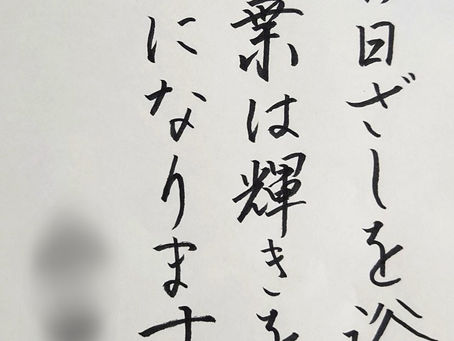 日ざしを浴
葉は輝きを
になります